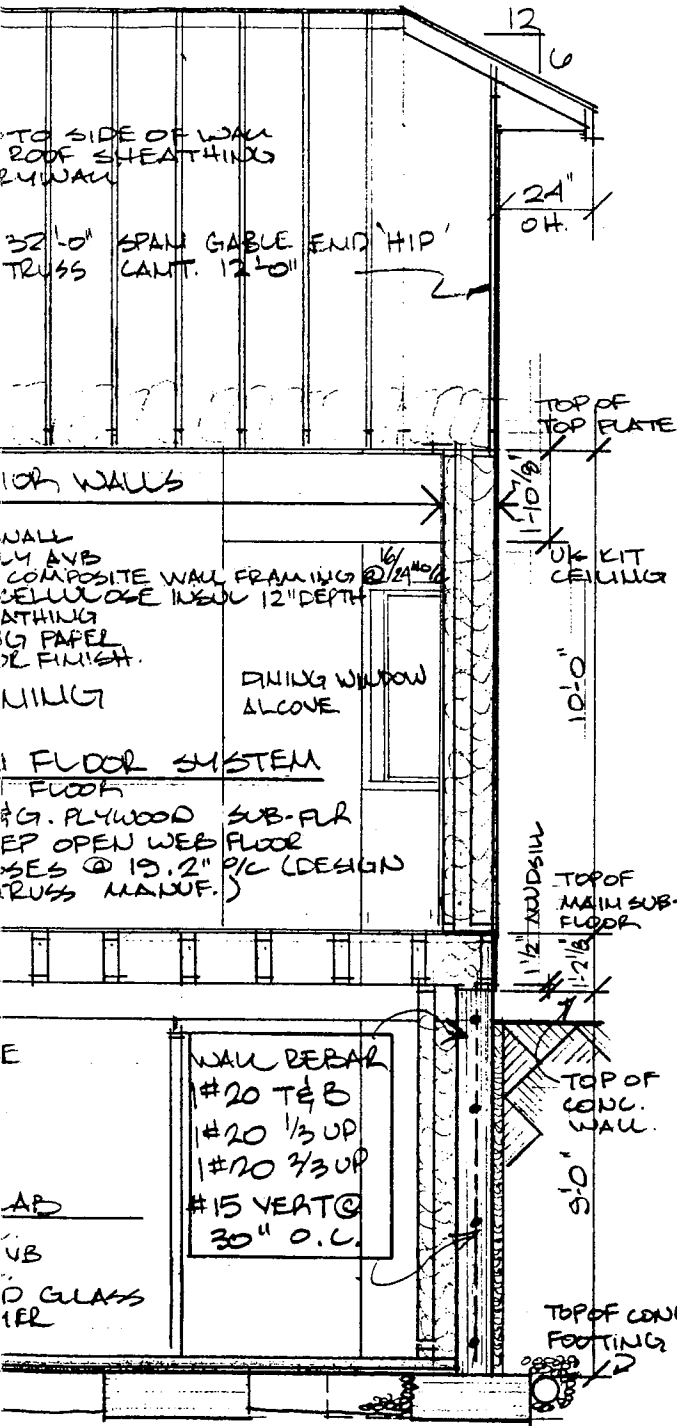 12
6
TO SIDE OF WALL
ROOF SHEATHING
RYWALL
24"
OH.
32'-0" SPAN GABLE END 'HIP'
TRUSS CANT. 12'-0"
TOP OF
TOP PLATE
IOR WALLS
1'-10 1/8"
WALL
LY AVB
COMPOSITE WALL FRAMING @ 16/24" o/c
CELLULOSE INSUL 12" DEPTH
ATHING
NG PAPER
OR FINISH.
U/S KIT
CEILING
NING
DINING WINDOW
ALCOVE
10'-0"
FLOOR SYSTEM
FLOOR
&G. PLYWOOD SUB-FLR
EP OPEN WEB FLOOR
SSES @ 19.2" o/c (DESIGN
TRUSS MANUF.)
1 1/2" MUDSILL
TOP OF
MAIN SUB-
FLOOR
1'-2 1/8"
E
WALL REBAR
1 #20 T & B
1 #20 1/3 UP
1 #20 2/3 UP
#15 VERT @
30" O.C.
TOP OF
CONC.
WALL.
9'-0"
LAB
VB
D GLASS
IER
TOP OF CONC
FOOTING